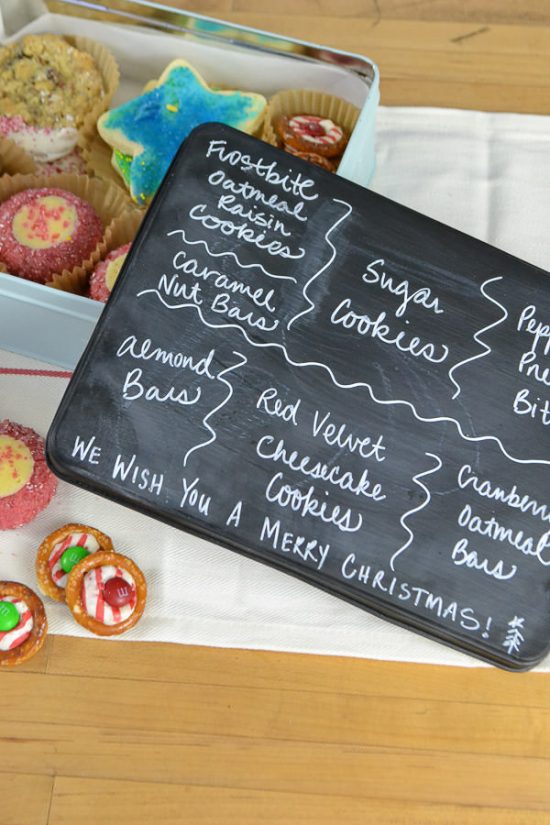 Frostbite
Oatmeal
Raisin
Cookies
Caramel
Nut Bars
Sugar
Cookies
Almond
Bars
Red Velvet
Cheesecake
Cookies
Oatmeal
Bars
We Wish You A Merry Christmas!